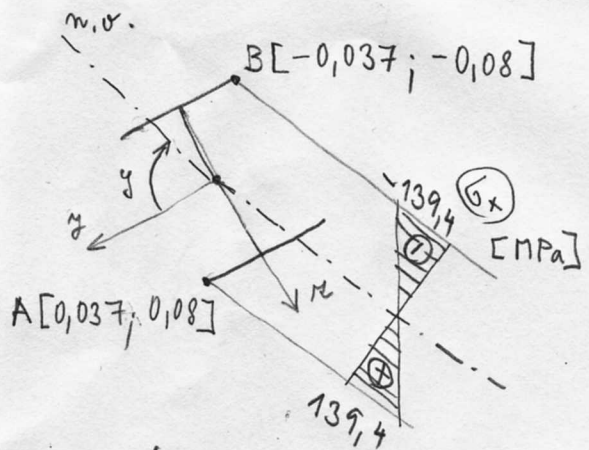 n.o.
B[-0,037; -0,08]
y
y
-139,4
σx
[MPa]
-
z
A[0,037; 0,08]
+
139,4